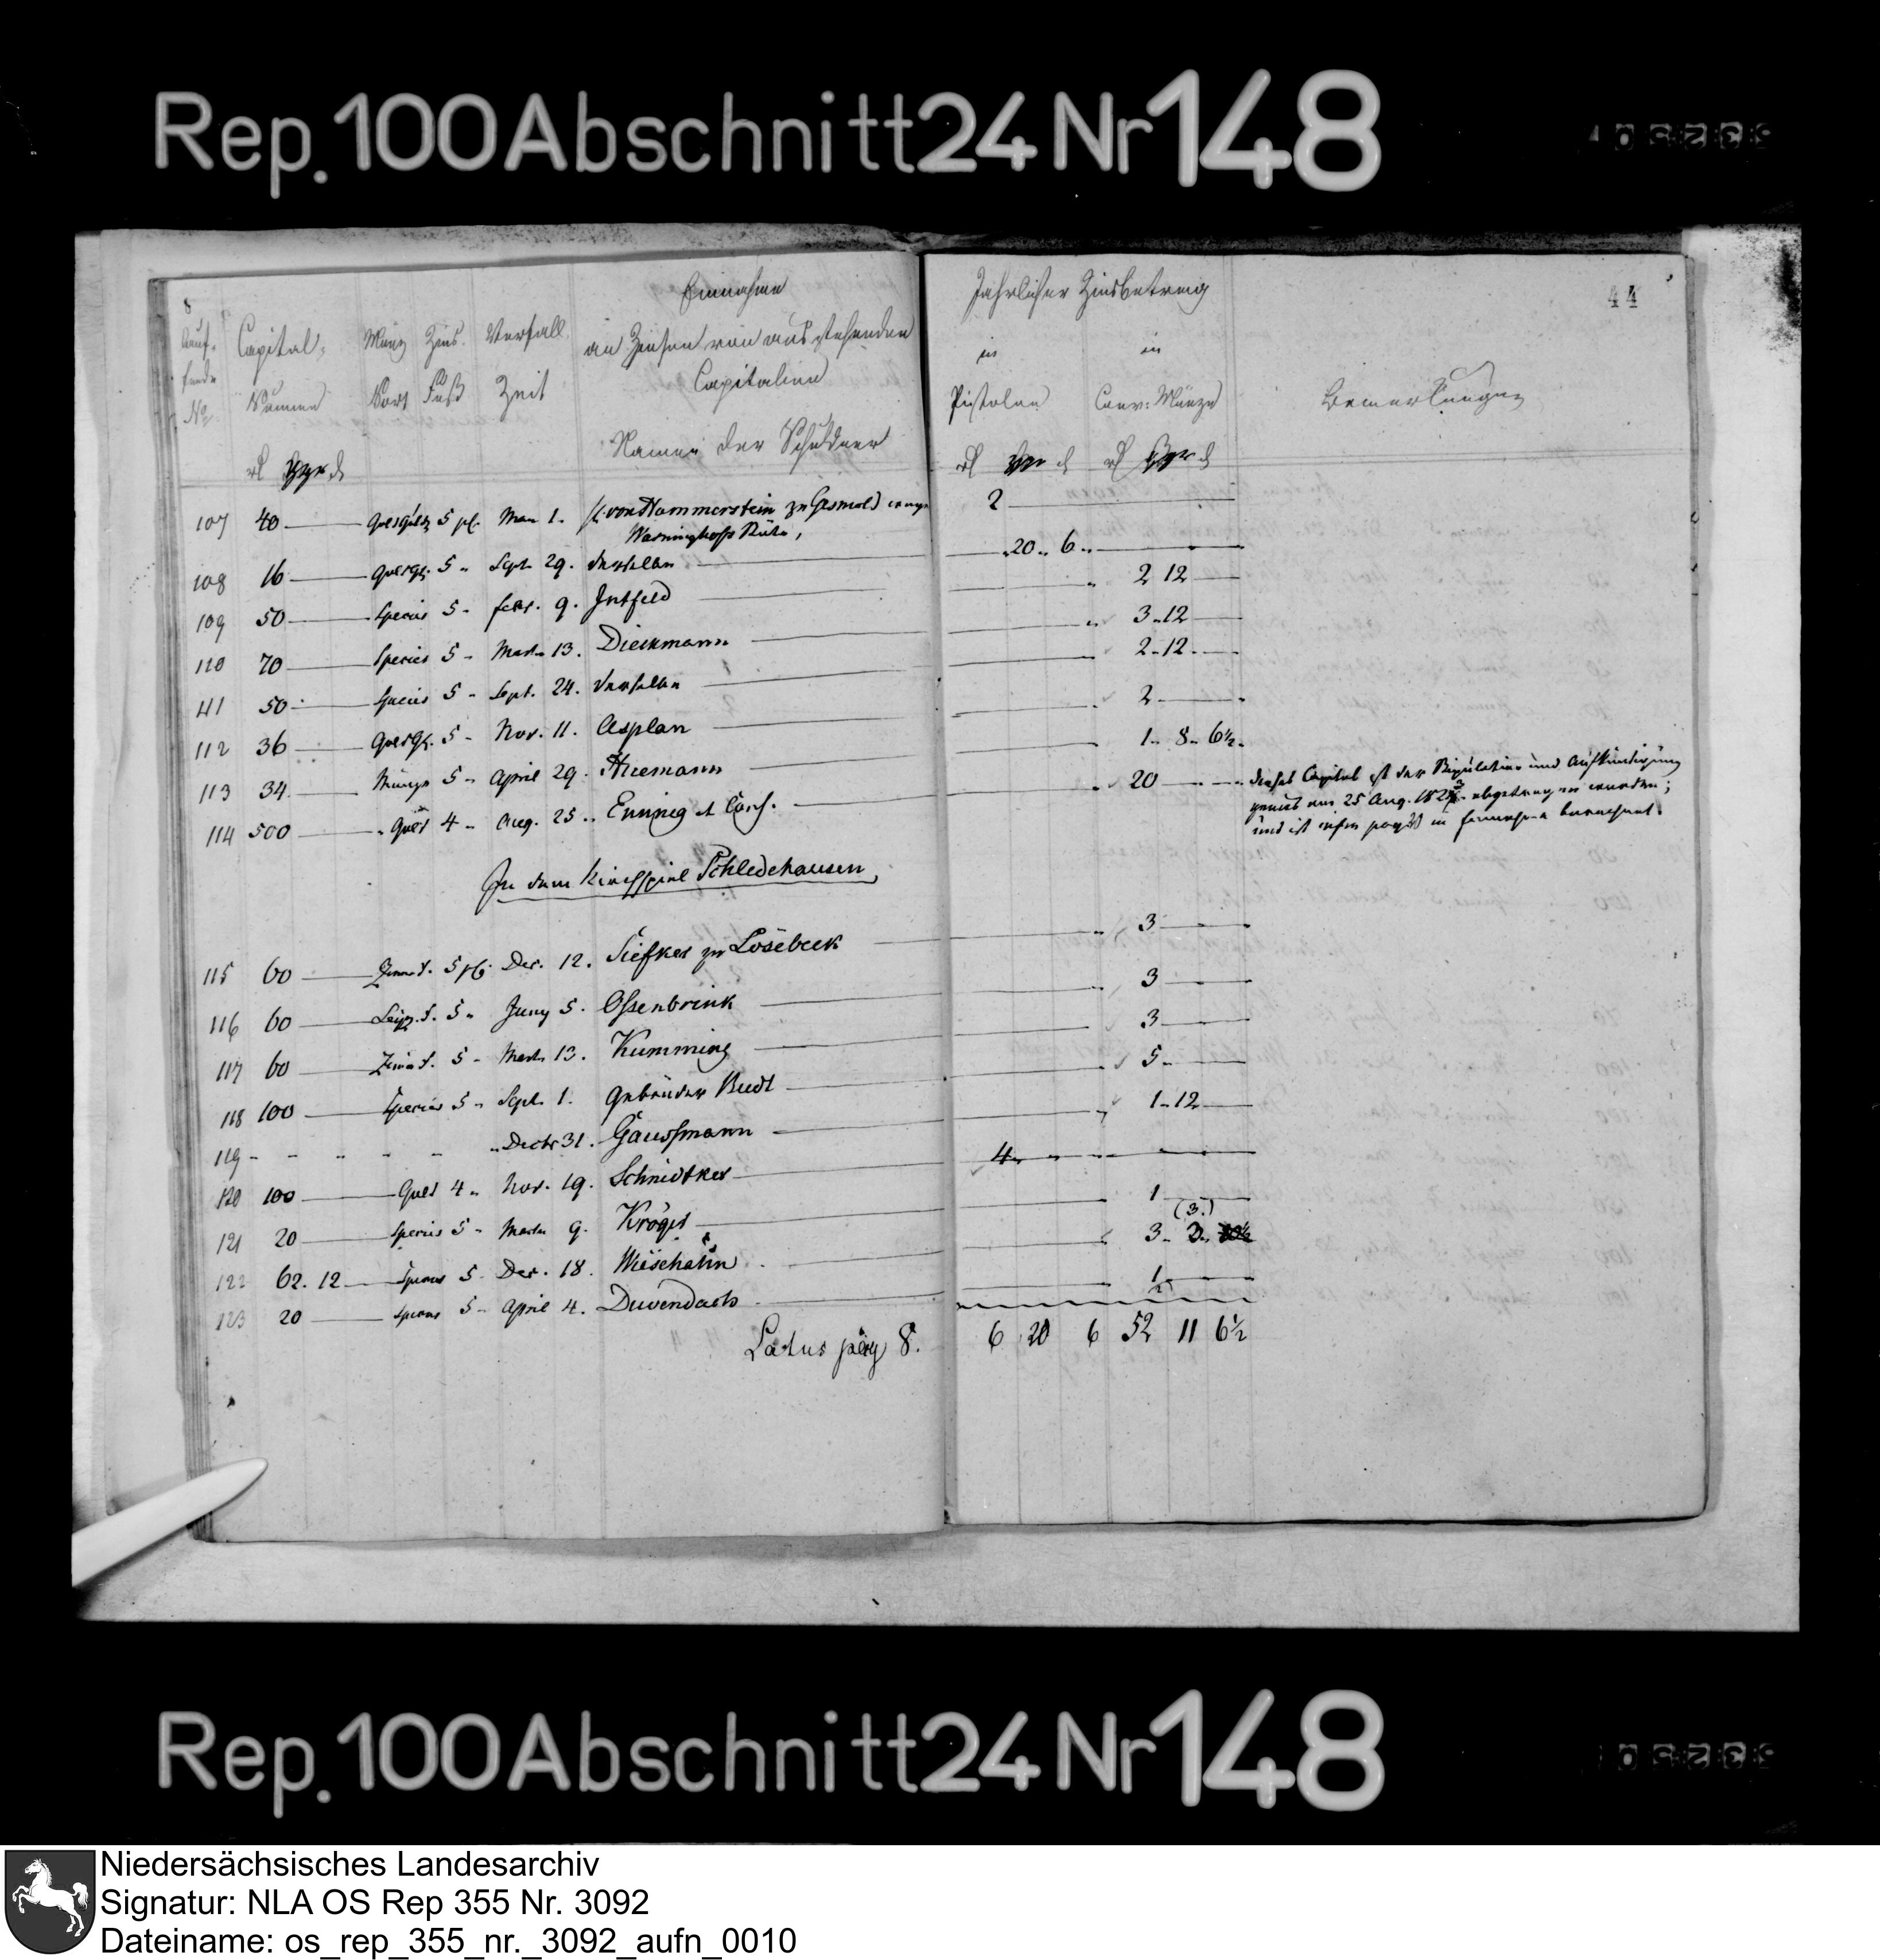 Rep. 100 Abschnitt 24 Nr 148
8
Laufende No
Capital-Summen
Münz Sort
Zins-Fuß
Verfall Zeit
Einnahme
an Zinsen von ausstehenden
Capitalien
Namen der Schuldner
Jährlicher Zinsbetrag
in Pistolen
in Conv: Münze
Bemerkungen
44
107 40 5 pC. 1. von Hammerstein zu Gesmold 2
108 16 5 Sept. 29. derselbe 20 6
109 50 Species 5 Febr. 9. Intfeld 2 12
110 70 Species 5 Martz 13. Dieckmann 3 12
111 50 Species 5 Sept. 24. derselbe 2 12
112 36 5 Nov. 11. Asplan 2
113 34 Münze 5 April 29. Huemann 1 8 6½
114 500 4 Aug. 25 Enning et Cons. 20 dieses Capital ist der und Aufkündigung
gemäs am 25 Aug. abgetragen worden;
und ist in Einnahme berechnet.
In dem Kirchspiel Schledehausen
115 60 5 pC. Dec. 12. Siefker zu Lösebeck 3
116 60 5 Juny 5. Ossenbrink 3
117 60 5 Martz 13. Kumming 3
118 100 Species 5 Sept. 1. Gebrüder Budt 5
119 Decbr 31. Gausmann 1 12
120 100 4 Nov. 19. Schmidtker 4
121 20 Species 5 Martz 9. Kröger 1
(3.)
122 62. 12 Species 5 Dec. 18. Wiesehahn 3 3
123 20 Species 5 April 4. Duvendach 1
Latus pag 8. 6 20 6 52 11 6½
Rep. 100 Abschnitt 24 Nr 148
Niedersächsisches Landesarchiv
Signatur: NLA OS Rep 355 Nr. 3092
Dateiname: os_rep_355_nr._3092_aufn_0010